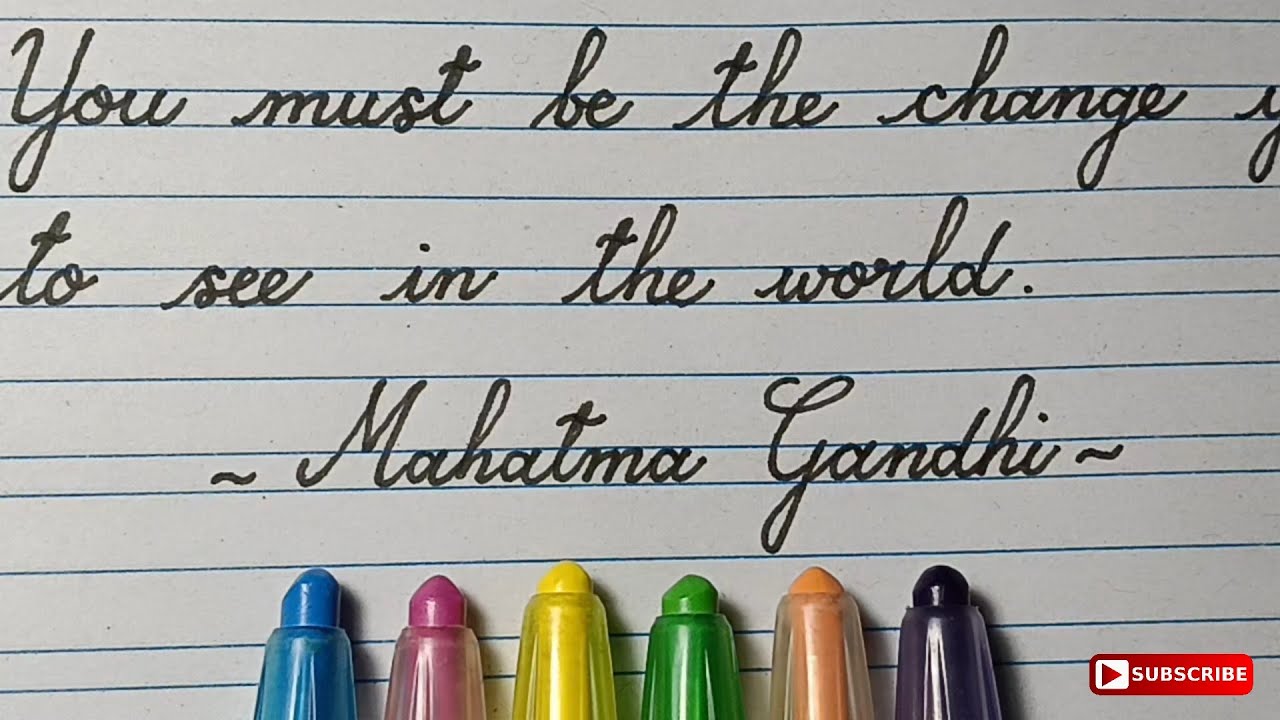 You must be the change
to see in the world.
~ Mahatma Gandhi ~
SUBSCRIBE